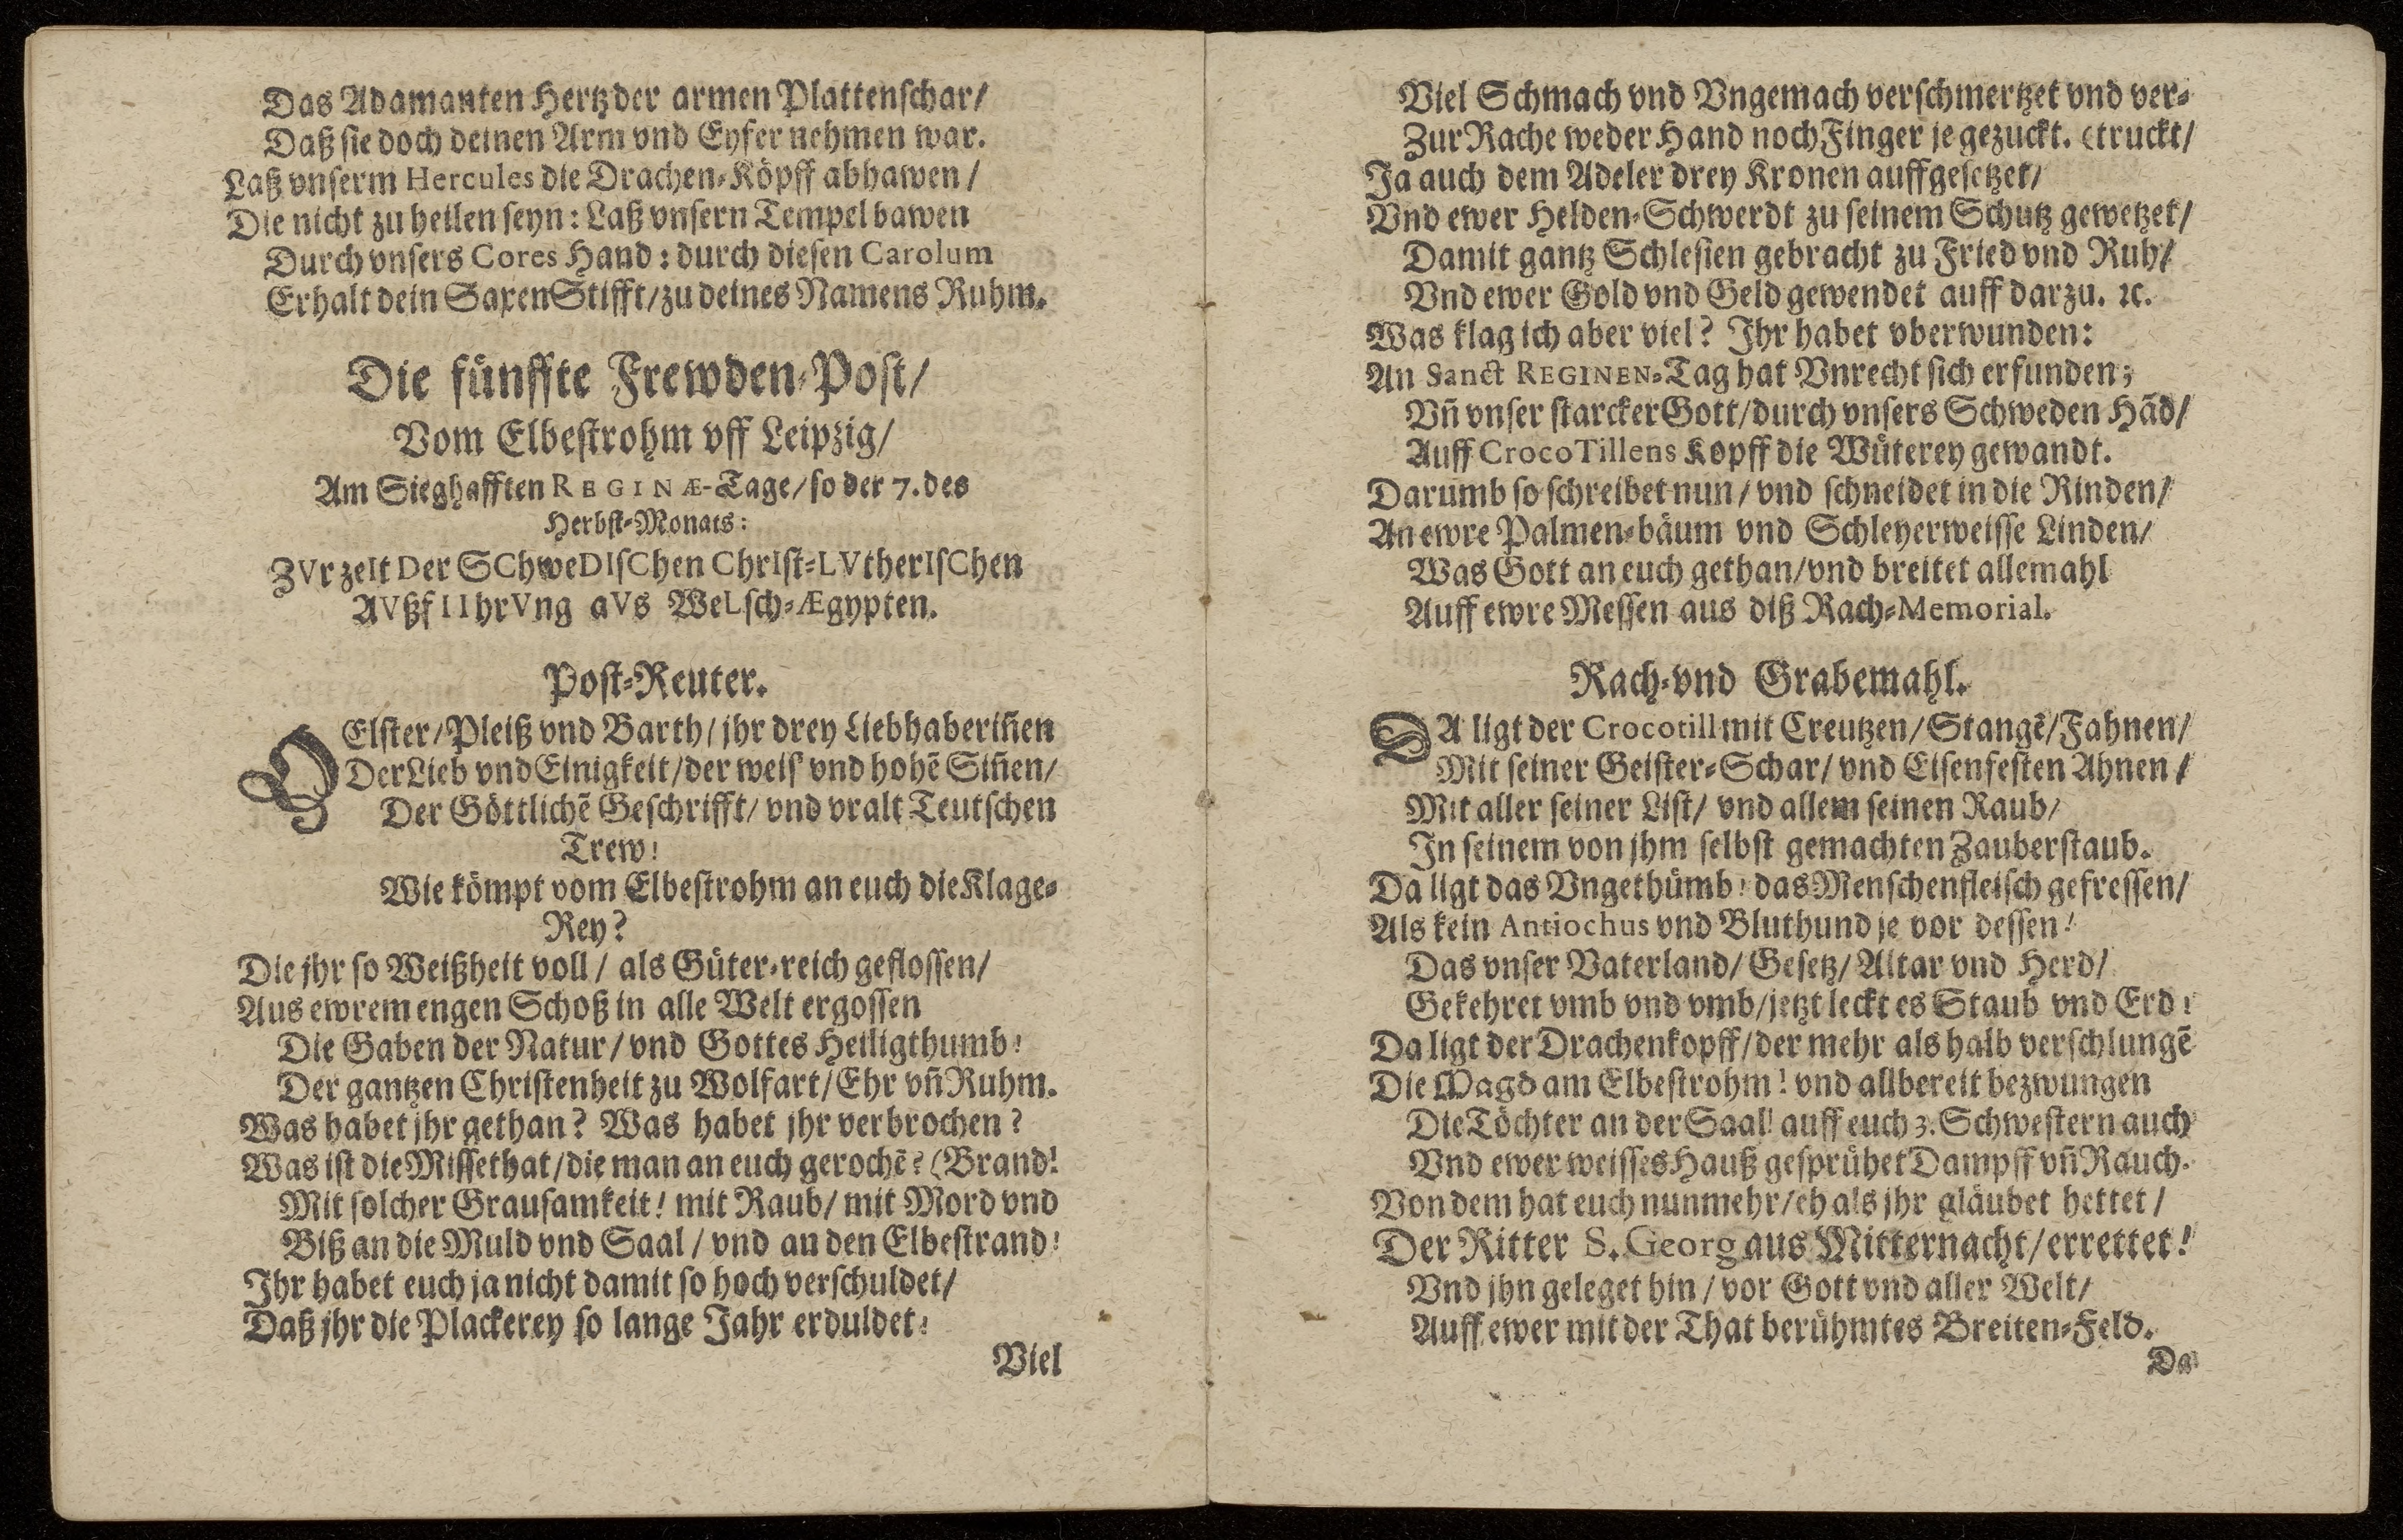 Das Adamanten Hertz der armen Plattenschar/
Daß sie doch deinen Arm vnd Eyfer nehmen war.
Laß vnserm Hercules die Drachen-Köpff abhawen/
Die nicht zu heilen seyn: Laß vnsern Tempel bawen
Durch vnsers Cores Hand: durch diesen Carolum
Erhalt dein SaxenStifft/zu deines Namens Ruhm.
Die fünffte Frewden-Post/
Vom Elbestrohm vff Leipzig/
Am Sieghafften REGINÆ-Tage/so der 7. des
Herbst-Monats:
ZVr zeIt Der SChweDIsChen ChrIst-LVtherIsChen
AVßfIIhrVng aVs WeLsch-Ægypten.
Post-Reuter.
O Elster/Pleiß vnd Barth/jhr drey Liebhaberiñen
Der Lieb vnd Einigkeit/der weis' vnd hohẽ Siñen/
Der Göttlichẽ Geschrifft/vnd vralt Teutschen
Trew!
Wie kömpt vom Elbestrohm an euch die Klage-
Rey?
Die jhr so Weißheit voll/als Güter-reich geflossen/
Aus ewrem engen Schoß in alle Welt ergossen
Die Gaben der Natur/vnd Gottes Heiligthumb!
Der gantzen Christenheit zu Wolfart/Ehr vñ Ruhm.
Was habet jhr gethan? Was habet jhr verbrochen?
Was ist die Missethat/die man an euch gerochẽ? (Brand!
Mit solcher Grausamkeit! mit Raub/mit Mord vnd
Biß an die Muld vnd Saal/vnd an den Elbestrand!
Ihr habet euch ja nicht damit so hoch verschuldet/
Daß jhr die Plackerey so lange Jahr erduldet:
Viel
Viel Schmach vnd Vngemach verschmertzet vnd ver-
Zur Rache weder Hand noch Finger je gezuckt. (truckt/
Ja auch dem Adeler drey Kronen auffgesetzet/
Vnd ewer Helden-Schwerdt zu seinem Schutz gewetzet/
Damit gantz Schlesien gebracht zu Fried vnd Ruh/
Vnd ewer Gold vnd Geld gewendet auff darzu. ꝛc.
Was klag ich aber viel? Ihr habet vberwunden:
An Sanct REGINEN-Tag hat Vnrecht sich erfunden;
Vñ vnser starcker Gott/durch vnsers Schweden Hãd/
Auff CrocoTillens Kopff die Wüterey gewandt.
Darumb so schreibet nun/vnd schneidet in die Rinden/
An ewre Palmen-bäum vnd Schleyerweisse Linden/
Was Gott an euch gethan/vnd breitet allemahl
Auff ewre Messen aus diß Rach-Memorial.
Rach-vnd Grabemahl.
DA ligt der Crocotill mit Creutzen/Stangẽ/Fahnen/
Mit seiner Geister-Schar/vnd Eisenfesten Ahnen/
Mit aller seiner List/vnd allem seinen Raub/
In seinem von jhm selbst gemachten Zauberstaub.
Da ligt das Vngethümb! das Menschenfleisch gefressen/
Als kein Antiochus vnd Bluthund je vor dessen!
Das vnser Vaterland/Gesetz/Altar vnd Herd/
Gekehret vmb vnd vmb/jetzt leckt es Staub vnd Erd!
Da ligt der Drachenkopff/der mehr als halb verschlungẽ
Die Magd am Elbestrohm! vnd allbereit bezwungen
Die Töchter an der Saal! auff euch 3. Schwestern auch
Vnd ewer weisses Hauß gesprühet Dampff vñ Rauch.
Von dem hat euch nunmehr/eh als jhr gläubet hettet/
Der Ritter S. Georg aus Mitternacht/errettet!
Vnd jhn geleget hin/vor Gott vnd aller Welt/
Auff ewer mit der That berühmtes Breiten-Feld.
Da